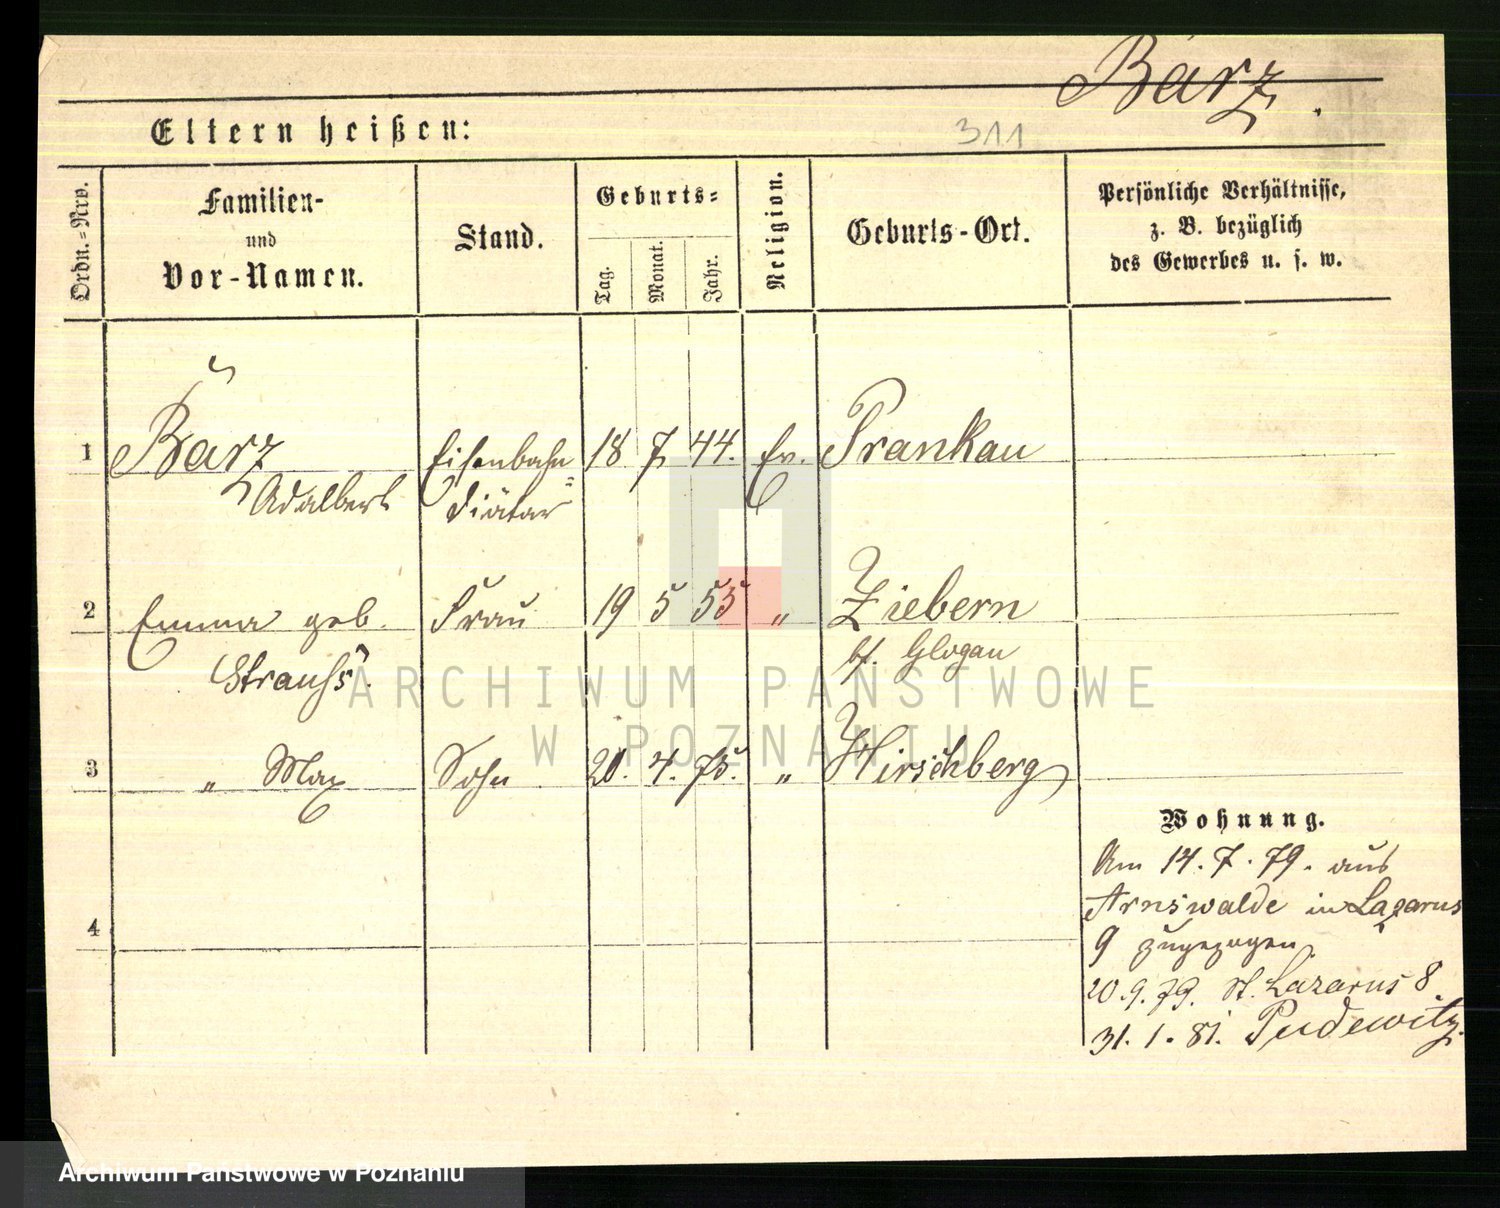 Bärz.
Eltern heißen:
311
Ordn.=Nro.
Familien-
und
Vor-Namen.
Stand.
Geburts=
Tag.
Monat.
Jahr.
Religion.
Geburts-Ort.
Persönliche Verhältnisse,
z. B. bezüglich
des Gewerbes u. s. w.
1 Bärz Eisenbahn= 18 7 44. Ev. Prankau
Adalbert Diätar
2 Emma geb. Frau 19 5 55 " Ziebern
Strauß. bf. Glogau
3 " Max Sohn 20. 4. 75. " Hirschberg
4
Wohnung.
Am 14.7.79. aus
Arnswalde in Lazarus
9 zugezogen
20.9.79. St. Lazarus 8.
31.1.81. Pudewitz.
ARCHIWUM PAŃSTWOWE
W POZNANIU
Archiwum Państwowe w Poznaniu